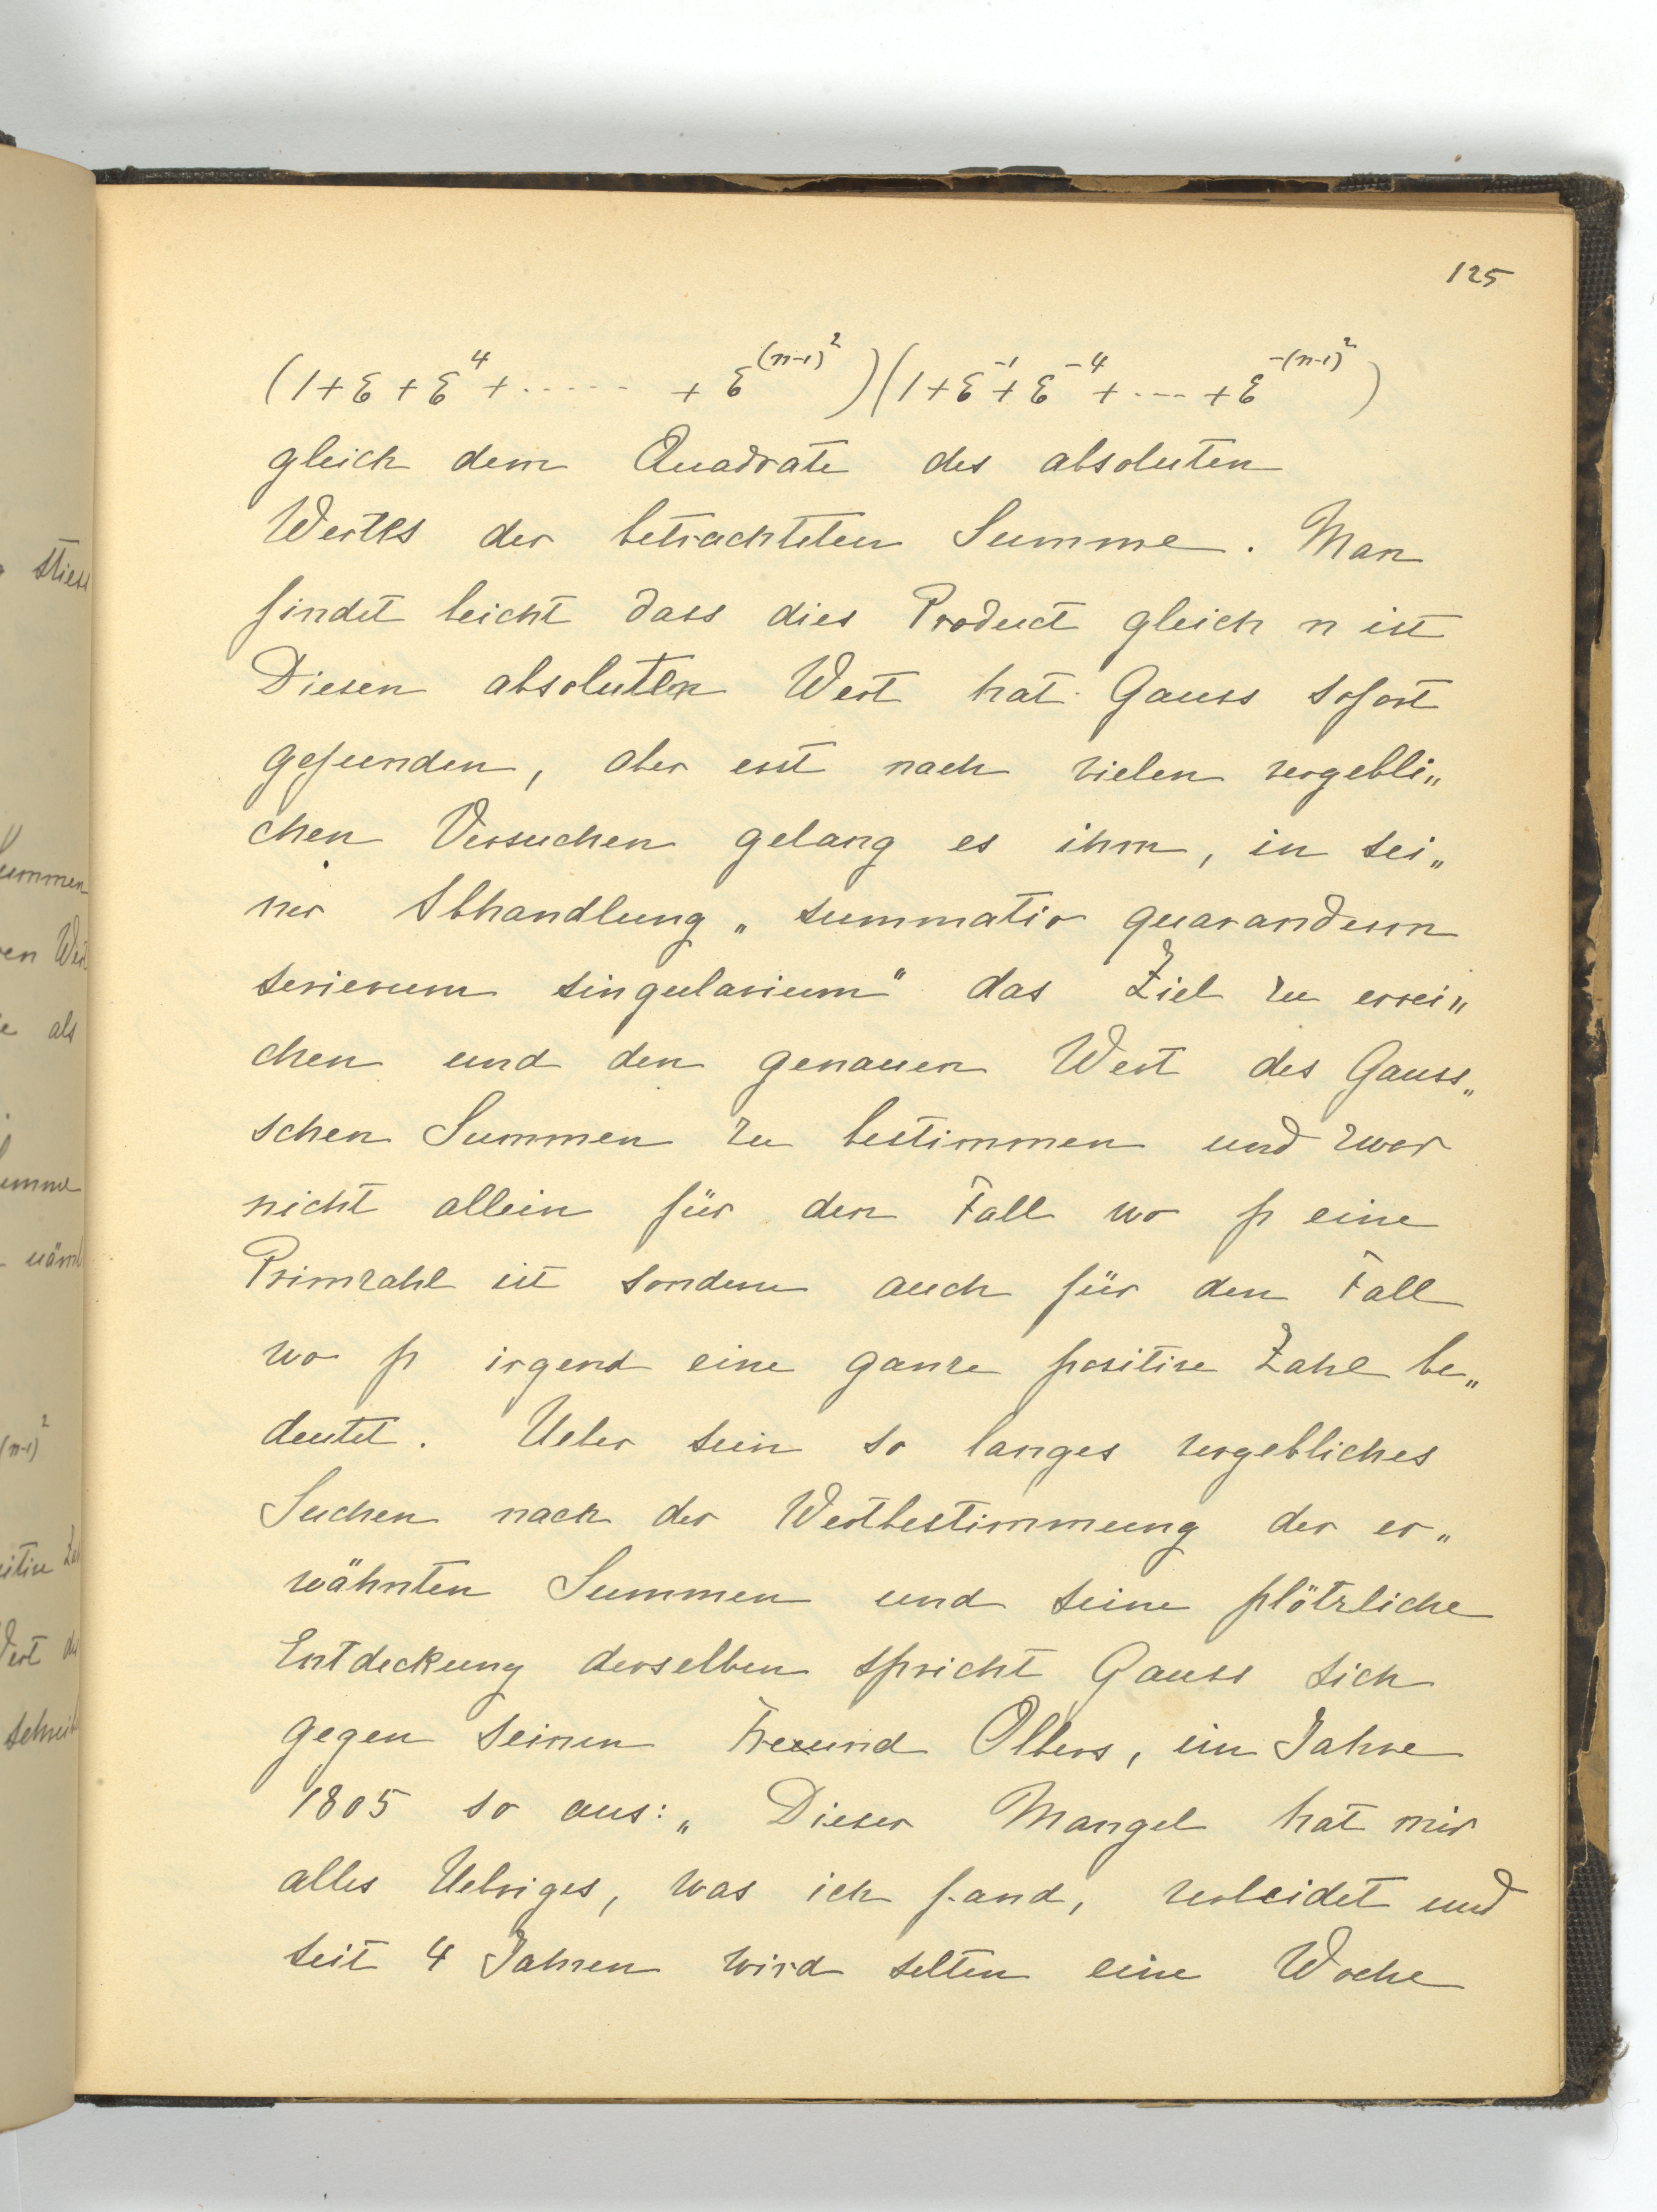 125
(1+ε+ε⁴+ ...... + ε^(n-1)²)(1+ε⁻¹+ε⁻⁴+ ... +ε^-(n-1)²)
gleich dem Quadrate des absoluten
Wertes der betrachteten Summe. Man
findet leicht dass dies Product gleich n ist
Diesen absoluten Wert hat Gauss sofort
gefunden, aber erst nach vielen vergebli„
chen Versuchen gelang es ihm, in sei„
ner Abhandlung „summatio quarandum
serierum singularium" das Ziel zu errei„
chen und den genauen Wert des Gauss„
schen Summen zu bestimmen und zwar
nicht allein für den Fall wo p eine
Primzahl ist sondern auch für den Fall
wo p irgend eine ganze positive Zahl be„
deutet. Ueber sein so langes vergebliches
Suchen nach der Wertbestimmung der er„
wähnten Summen und seine plötzliche
Entdeckung derselben spricht Gauss sich
gegen seinen Freund Olbers, im Jahre
1805 so aus: „Dieser Mangel hat mir
alles Uebriges, was ich fand, verleidet und
seit 4 Jahren wird selten eine Woche
stiess
Summen
als
(n-1)²